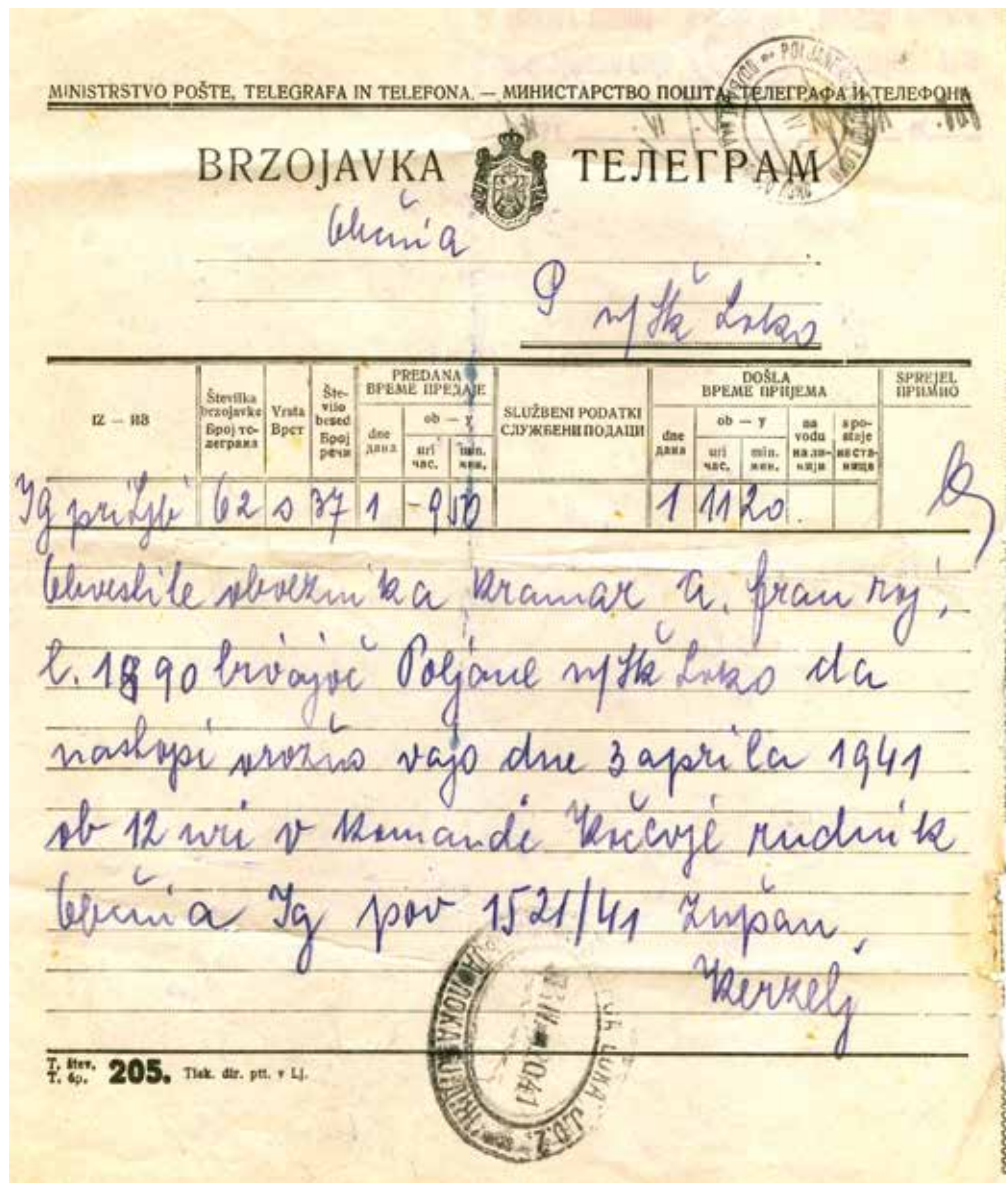 MINISTRSTVO POŠTE, TELEGRAFA IN TELEFONA. — МИНИСТАРСТВО ПОШТА, ТЕЛЕГРАФА И ТЕЛЕФОНА
BRZOJAVKA ТЕЛЕГРАМ
Občina
P n/Šk Loko
IZ — ИЗ
Številka brzojavke Број телеграма
Vrsta Врст
Število besed Број речи
PREDANA ВРЕМЕ ПРЕДАЈЕ
dne дана
ob — у
uri час.
min. мин.
SLUŽBENI PODATKI СЛУЖБЕНИ ПОДАЦИ
DOŠLA ВРЕМЕ ПРИЈЕМА
dne дана
ob — у
uri час.
min. мин.
na vodu на линији
s postaje из станице
SPREJEL ПРИМИО
Ig pri Ljb 62 37 1 - 9 50 1 11 20
Obvestite obveznika Kramar a. fran roj,
l. 1890 bivajoč Poljane n/Šk Loko da
nastopi orožno vajo dne 3 aprila 1941
ob 12 uri v Komandi Kočevje rudnik
Občina Ig pov 1521/41 župan,
Kerželj
T. štev.
T. бр. 205. Tisk. dir. ptt. v Lj.